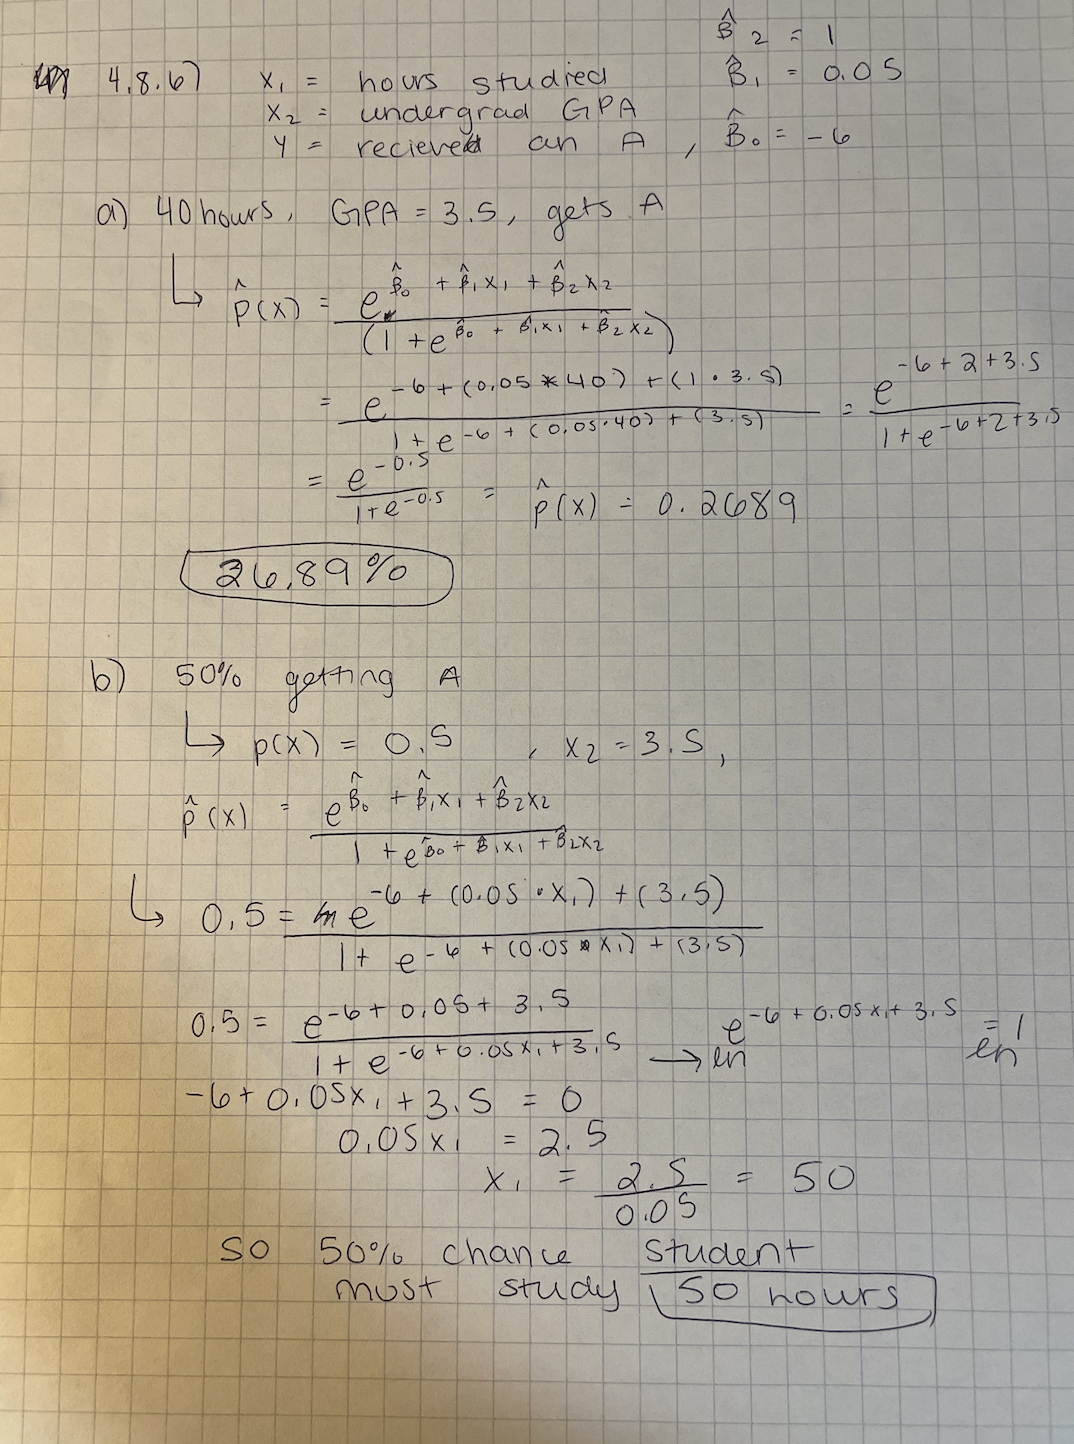 β̂2 = 1
4.8.6) x1 = hours studied β̂1 = 0.05
x2 = undergrad GPA
Y = recieved an A , β̂0 = -6
a) 40 hours, GPA = 3.5, gets A
↳ p̂(x) = e^(β̂0 + β̂1x1 + β̂2x2) / (1 + e^(β̂0 + β̂1x1 + β̂2x2))
= e^(-6 + (0.05 * 40) + (1 · 3.5)) / 1 + e^(-6 + (0.05·40) + (3.5)) = e^(-6+2+3.5) / 1 + e^(-6+2+3.5)
= e^(-0.5) / 1+e^(-0.5) = p̂(x) = 0.2689
26.89%
b) 50% getting A
↳ p(x) = 0.5 , x2 = 3.5,
p̂(x) = e^(β̂0 + β̂1x1 + β̂2x2) / 1 + e^(β̂0 + β̂1x1 + β̂2x2)
↳ 0.5 = e^(-6 + (0.05 · x1) + (3.5)) / 1 + e^(-6 + (0.05 * x1) + (3.5))
0.5 = e^(-6 + 0.05 + 3.5) / 1 + e^(-6 + 0.05x1 + 3.5) → ln e^(-6 + 0.05x1 + 3.5) = 1 ln
-6 + 0.05x1 + 3.5 = 0
0.05x1 = 2.5
x1 = 2.5 / 0.05 = 50
so 50% chance student
must study 50 hours